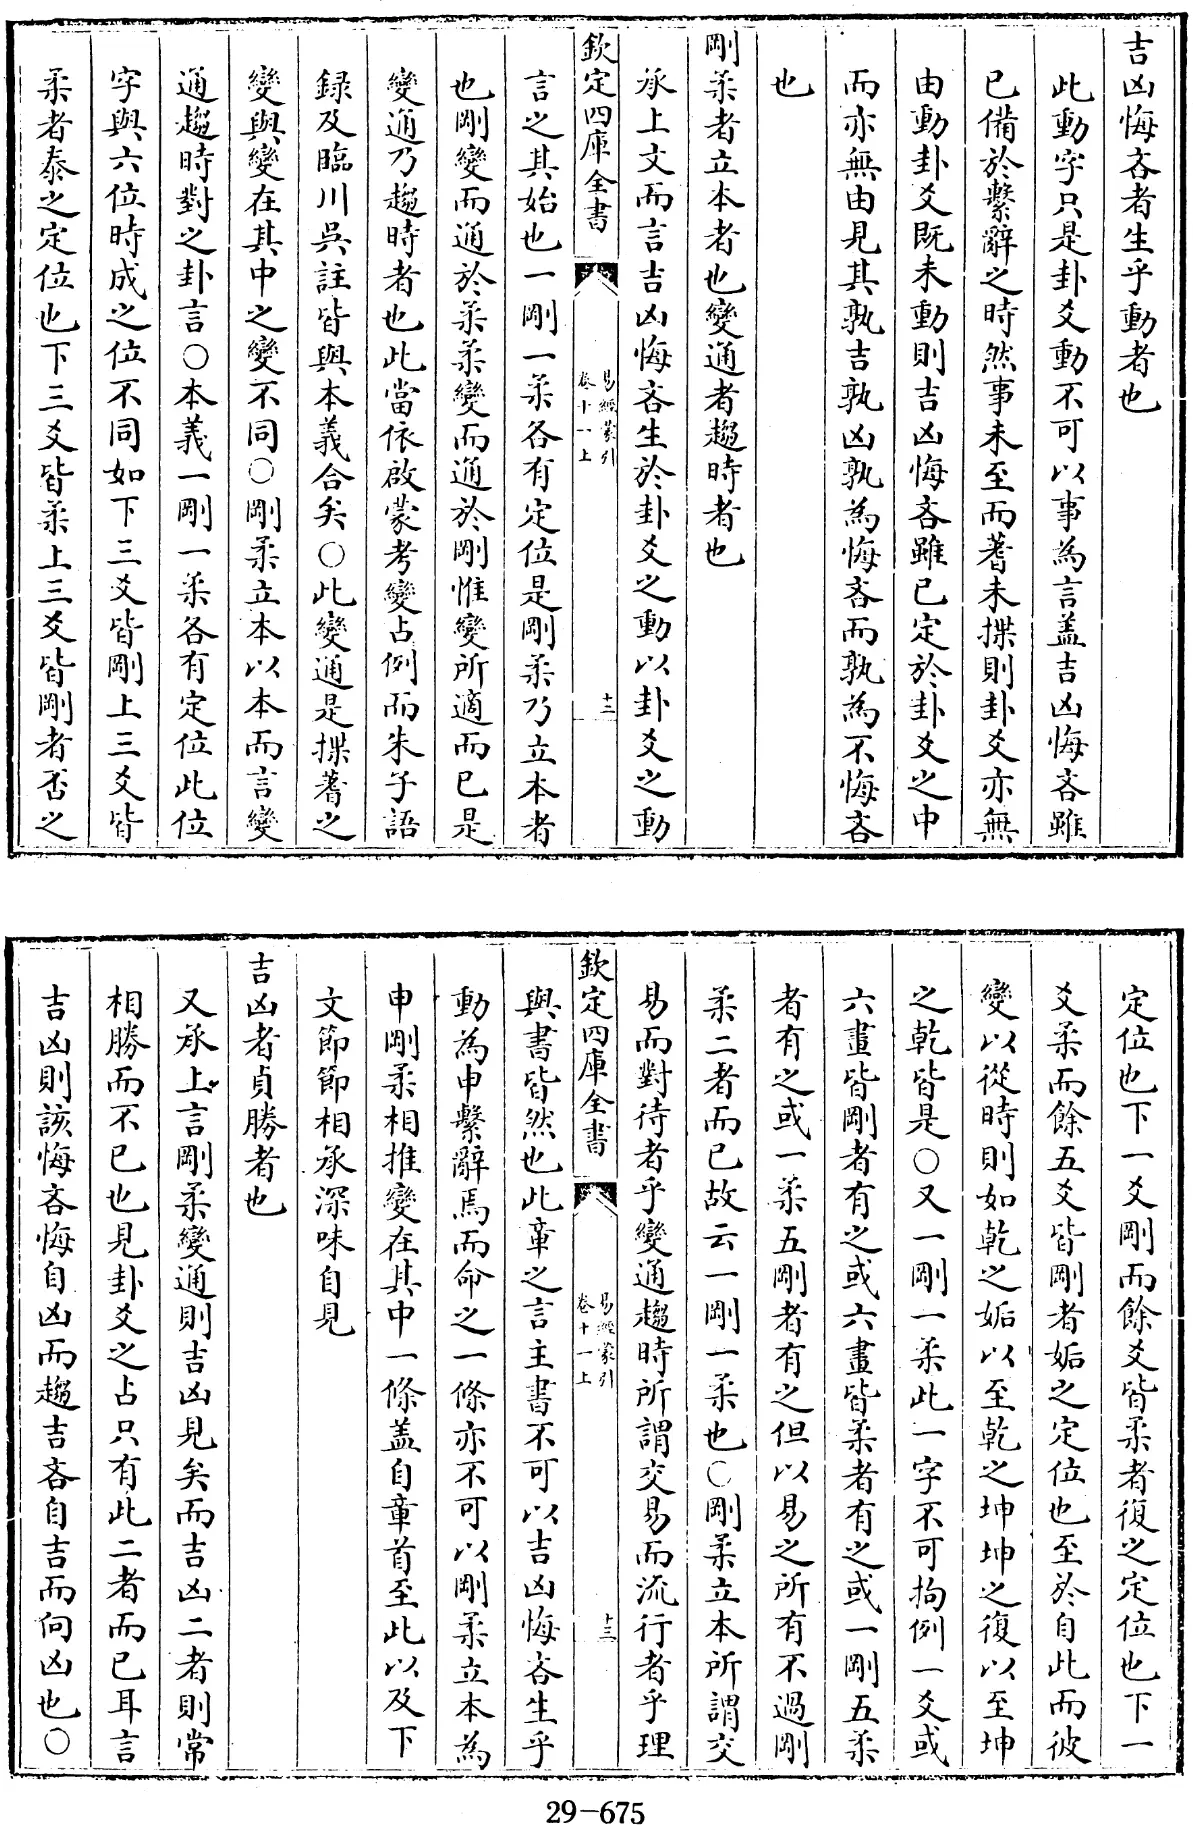 吉凶悔吝者生乎動者也
此動字只是卦爻動不可以事為言蓋吉凶悔吝雖
已備於繫辭之時然事未至而蓍未揲則卦爻亦無
由動卦爻既未動則吉凶悔吝雖已定於卦爻之中
而亦無由見其孰吉孰凶孰為悔吝而孰為不悔吝
也
剛柔者立本者也變通者趨時者也
承上文而言吉凶悔吝生於卦爻之動以卦爻之動
欽定四庫全書
易經蒙引
卷十一上
十二
言之其始也一剛一柔各有定位是剛柔乃立本者
也剛變而通於柔柔變而通於剛惟變所適而已是
變通乃趨時者也此當依啟蒙考變占例而朱子語
録及臨川吳註皆與本義合矣○此變通是揲蓍之
變與變在其中之變不同○剛柔立本以本而言變
通趨時對之卦言○本義一剛一柔各有定位此位
字與六位時成之位不同如下三爻皆剛上三爻皆
柔者泰之定位也下三爻皆柔上三爻皆剛者否之
定位也下一爻剛而餘爻皆柔者復之定位也下一
爻柔而餘五爻皆剛者姤之定位也至於自此而彼
變以從時則如乾之姤以至乾之坤坤之復以至坤
之乾皆是○又一剛一柔此一字不可拘例一爻或
六畫皆剛者有之或六畫皆柔者有之或一剛五柔
者有之或一柔五剛者有之但以易之所有不過剛
柔二者而已故云一剛一柔也○剛柔立本所謂交
易而對待者乎變通趨時所謂交易而流行者乎理
欽定四庫全書
易經蒙引
卷十一上
十三
與書皆然也此章之言主書不可以吉凶悔吝生乎
動為申繫辭焉而命之一條亦不可以剛柔立本為
申剛柔相推變在其中一條蓋自章首至此以及下
文節節相承深味自見
吉凶者貞勝者也
又承上言剛柔變通則吉凶見矣而吉凶二者則常
相勝而不已也見卦爻之占只有此二者而已耳言
吉凶則該悔吝悔自凶而趨吉吝自吉而向凶也○
29-675